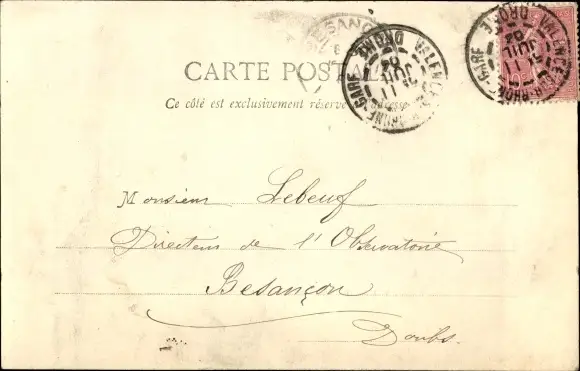 BESANÇ
CARTE POSTALE
Ce côté est exclusivement réservé
adresse
VALENCE-S-RHONE-GARE
DROME
11
JUIL
04
VALENCE-S-RHONE-GARE
DROME
11
JUIL
04
Monsieur Lebeuf
Directeur de l'Observatoire
Besançon
Doubs.